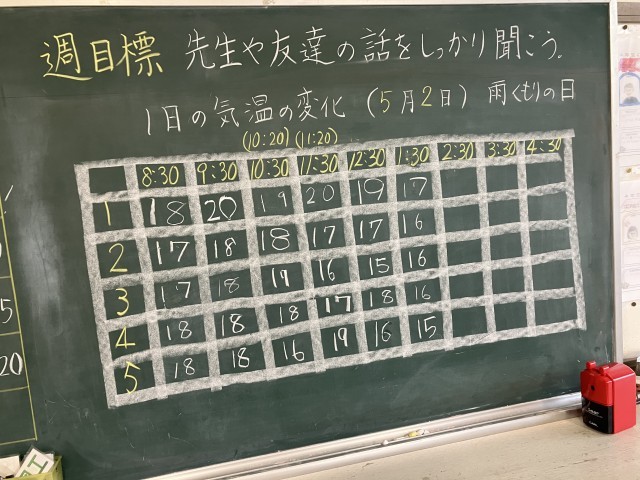 週目標 先生や友達の話をしっかり聞こう。
1日の気温の変化 (5月2日) 雨くもりの日
(10:20) (11:20)
8:30 9:30 10:30 11:30 12:30 1:30 2:30 3:30 4:30
1 18 20 19 20 19 17
2 17 18 18 17 17 16
3 17 18 19 16 15 16
4 18 18 18 17 18 16
5 18 18 16 19 16 15
5
20